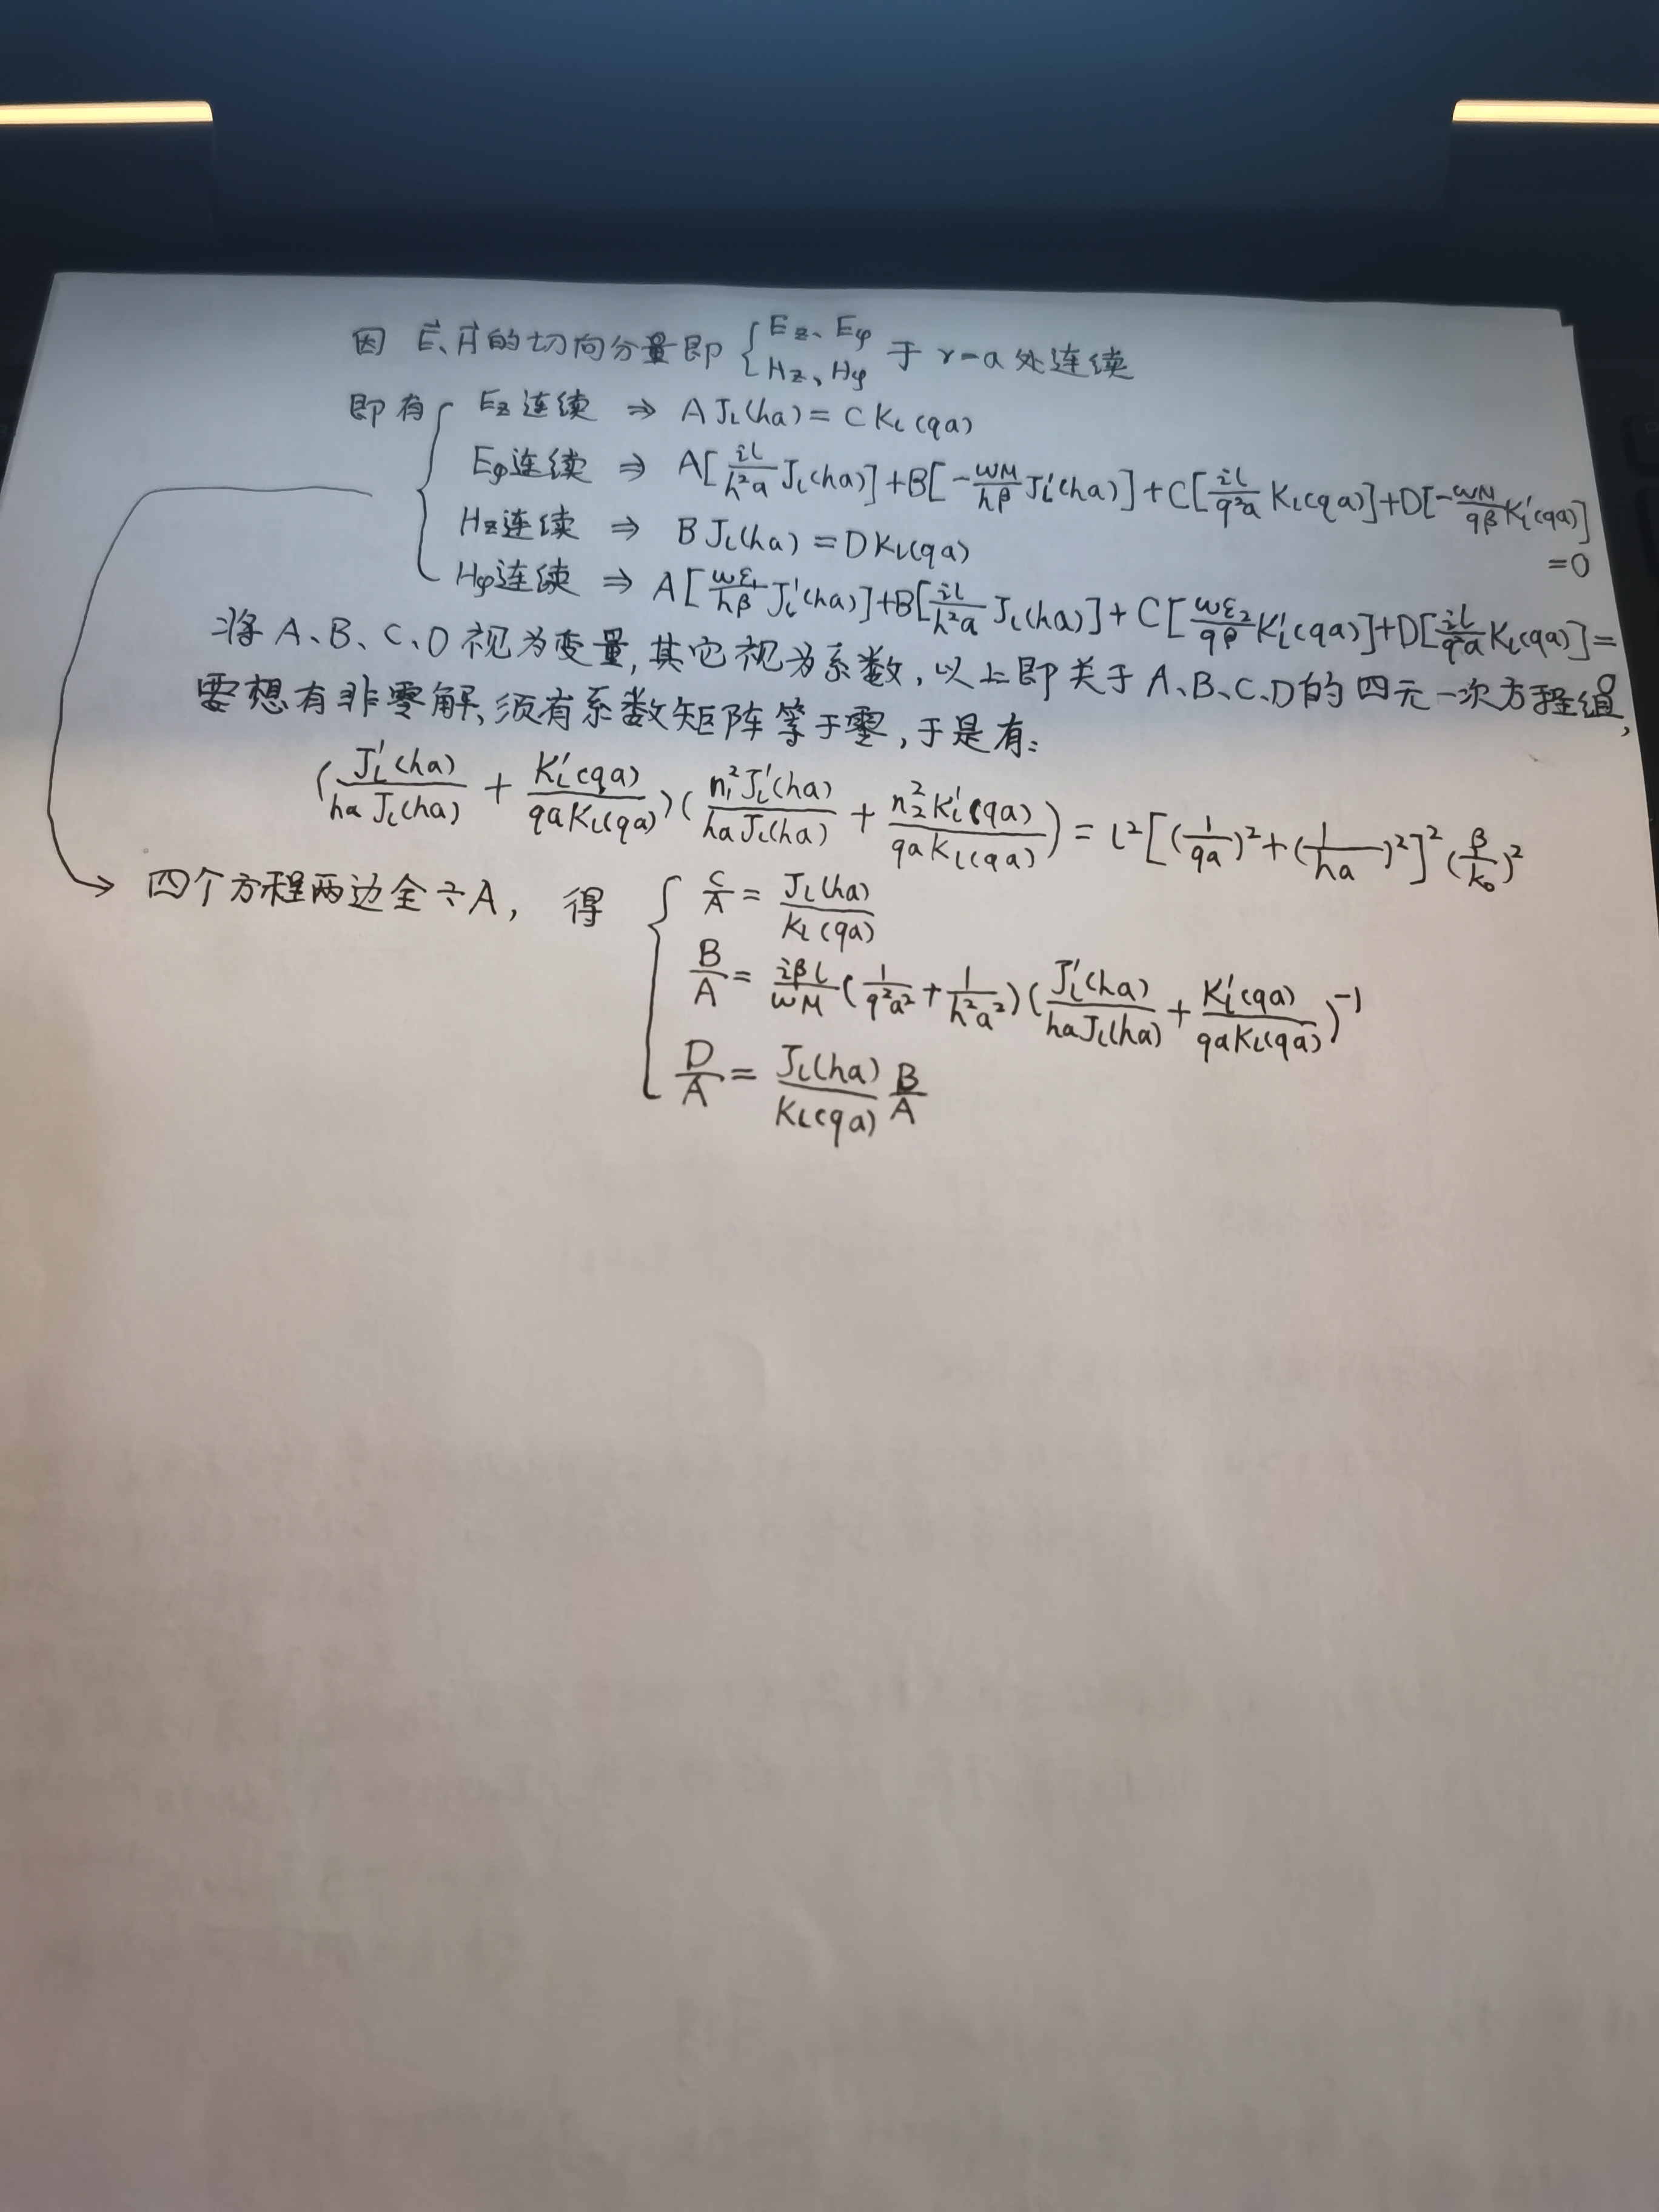 因 E⃗、H⃗的切向分量即 { Ez、Eφ Hz、Hφ 于 r=a 处连续
即有 { Ez连续 ⇒ A Jl(ha) = C Kl(qa)
Eφ连续 ⇒ A[il/(h²a) Jl(ha)] + B[-ωμ/(hβ) Jl'(ha)] + C[il/(q²a) Kl(qa)] + D[-ωμ/(qβ) Kl'(qa)] = 0
Hz连续 ⇒ B Jl(ha) = D Kl(qa)
Hφ连续 ⇒ A[ωε₁/(hβ) Jl'(ha)] + B[il/(h²a) Jl(ha)] + C[ωε₂/(qβ) Kl'(qa)] + D[il/(q²a) Kl(qa)] = 0
将 A、B、C、D 视为变量,其它视为系数,以上即关于 A、B、C、D的四元一次方程组,
要想有非零解、须有系数矩阵等于零,于是有:
(Jl'(ha)/(ha Jl(ha)) + Kl'(qa)/(qa Kl(qa))) (n₁² Jl'(ha)/(ha Jl(ha)) + n₂² Kl'(qa)/(qa Kl(qa))) = l² [(1/qa)² + (1/ha)²]² (β/k₀)²
→ 四个方程两边全÷A, 得 { C/A = Jl(ha)/Kl(qa)
B/A = iβl/(ωμ) (1/(q²a²) + 1/(h²a²)) (Jl'(ha)/(ha Jl(ha)) + Kl'(qa)/(qa Kl(qa)))⁻¹
D/A = Jl(ha)/Kl(qa) B/A